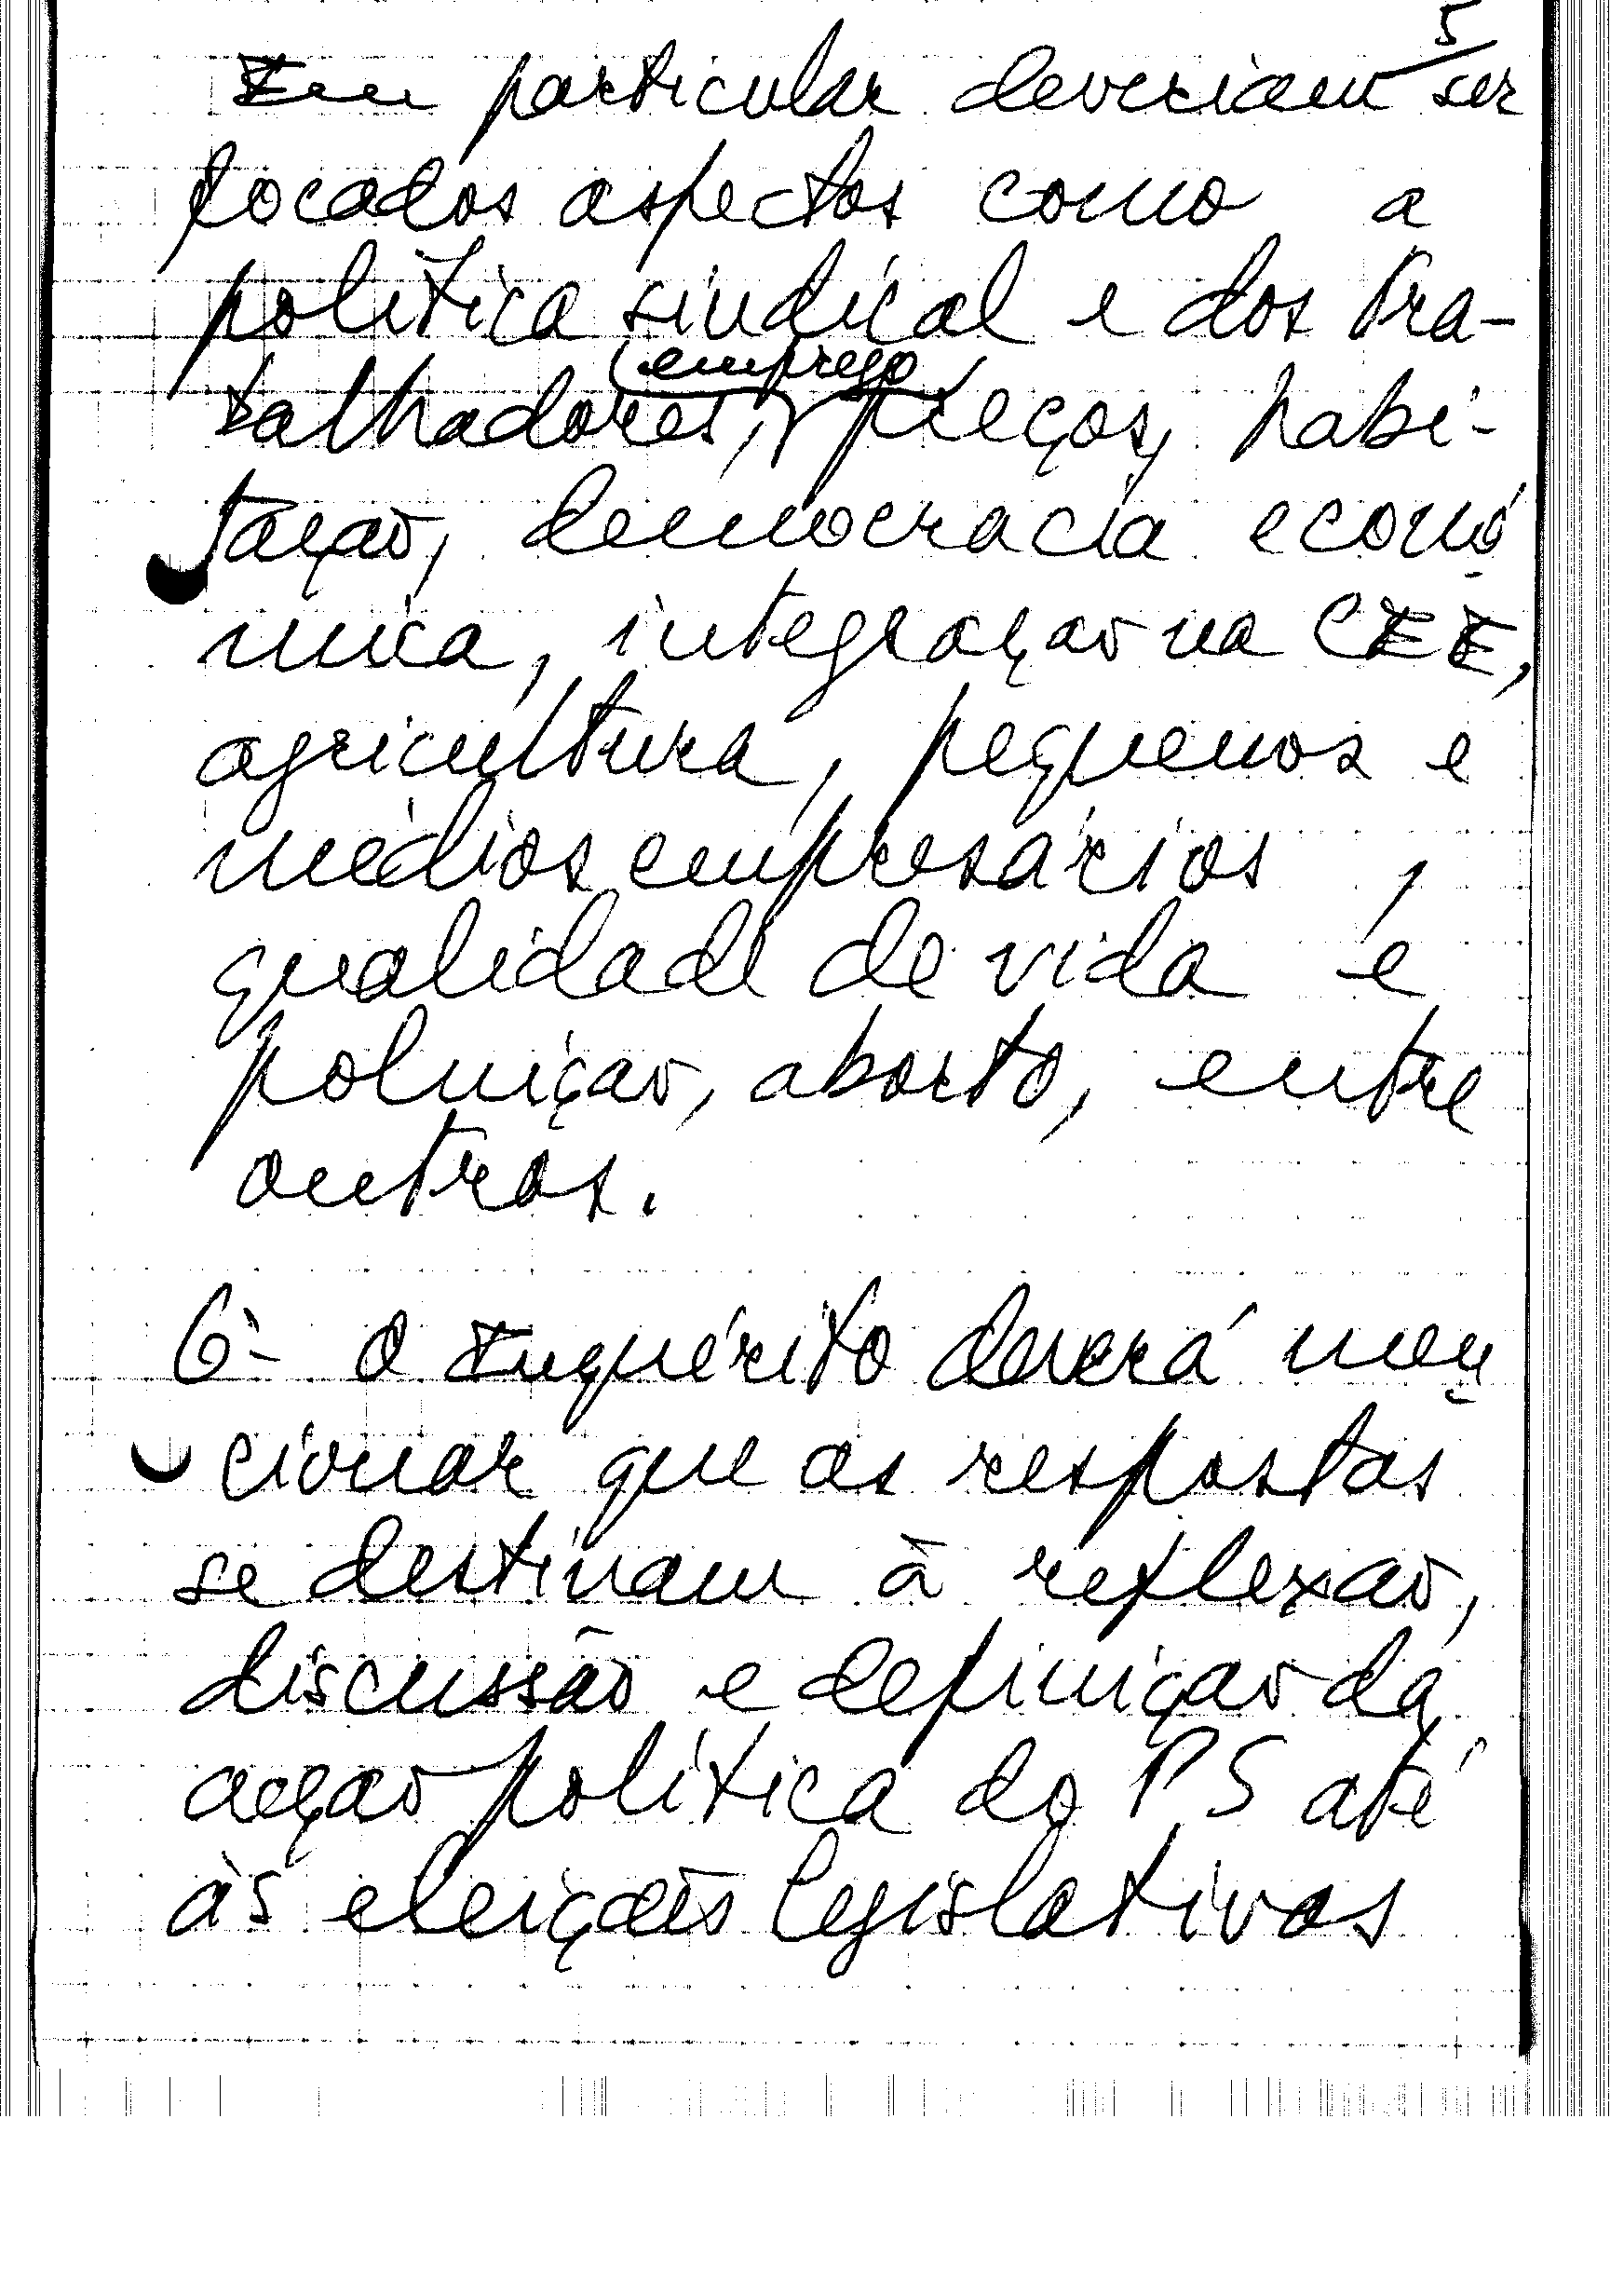 5
Em particular deveriam ser
focados aspectos como a
política sindical e dos tra-
balhadores, emprego, preços, habi-
tação, democracia econó
mica, integração na CEE,
agricultura, pequenos e
médios empresários,
qualidade de vida e
poluição, aborto, entre
outros.
6- O Inquérito deverá men
cionar que as respostas
se destinam à reflexão,
discussão e definição da
acção política do PS até
às eleições legislativas